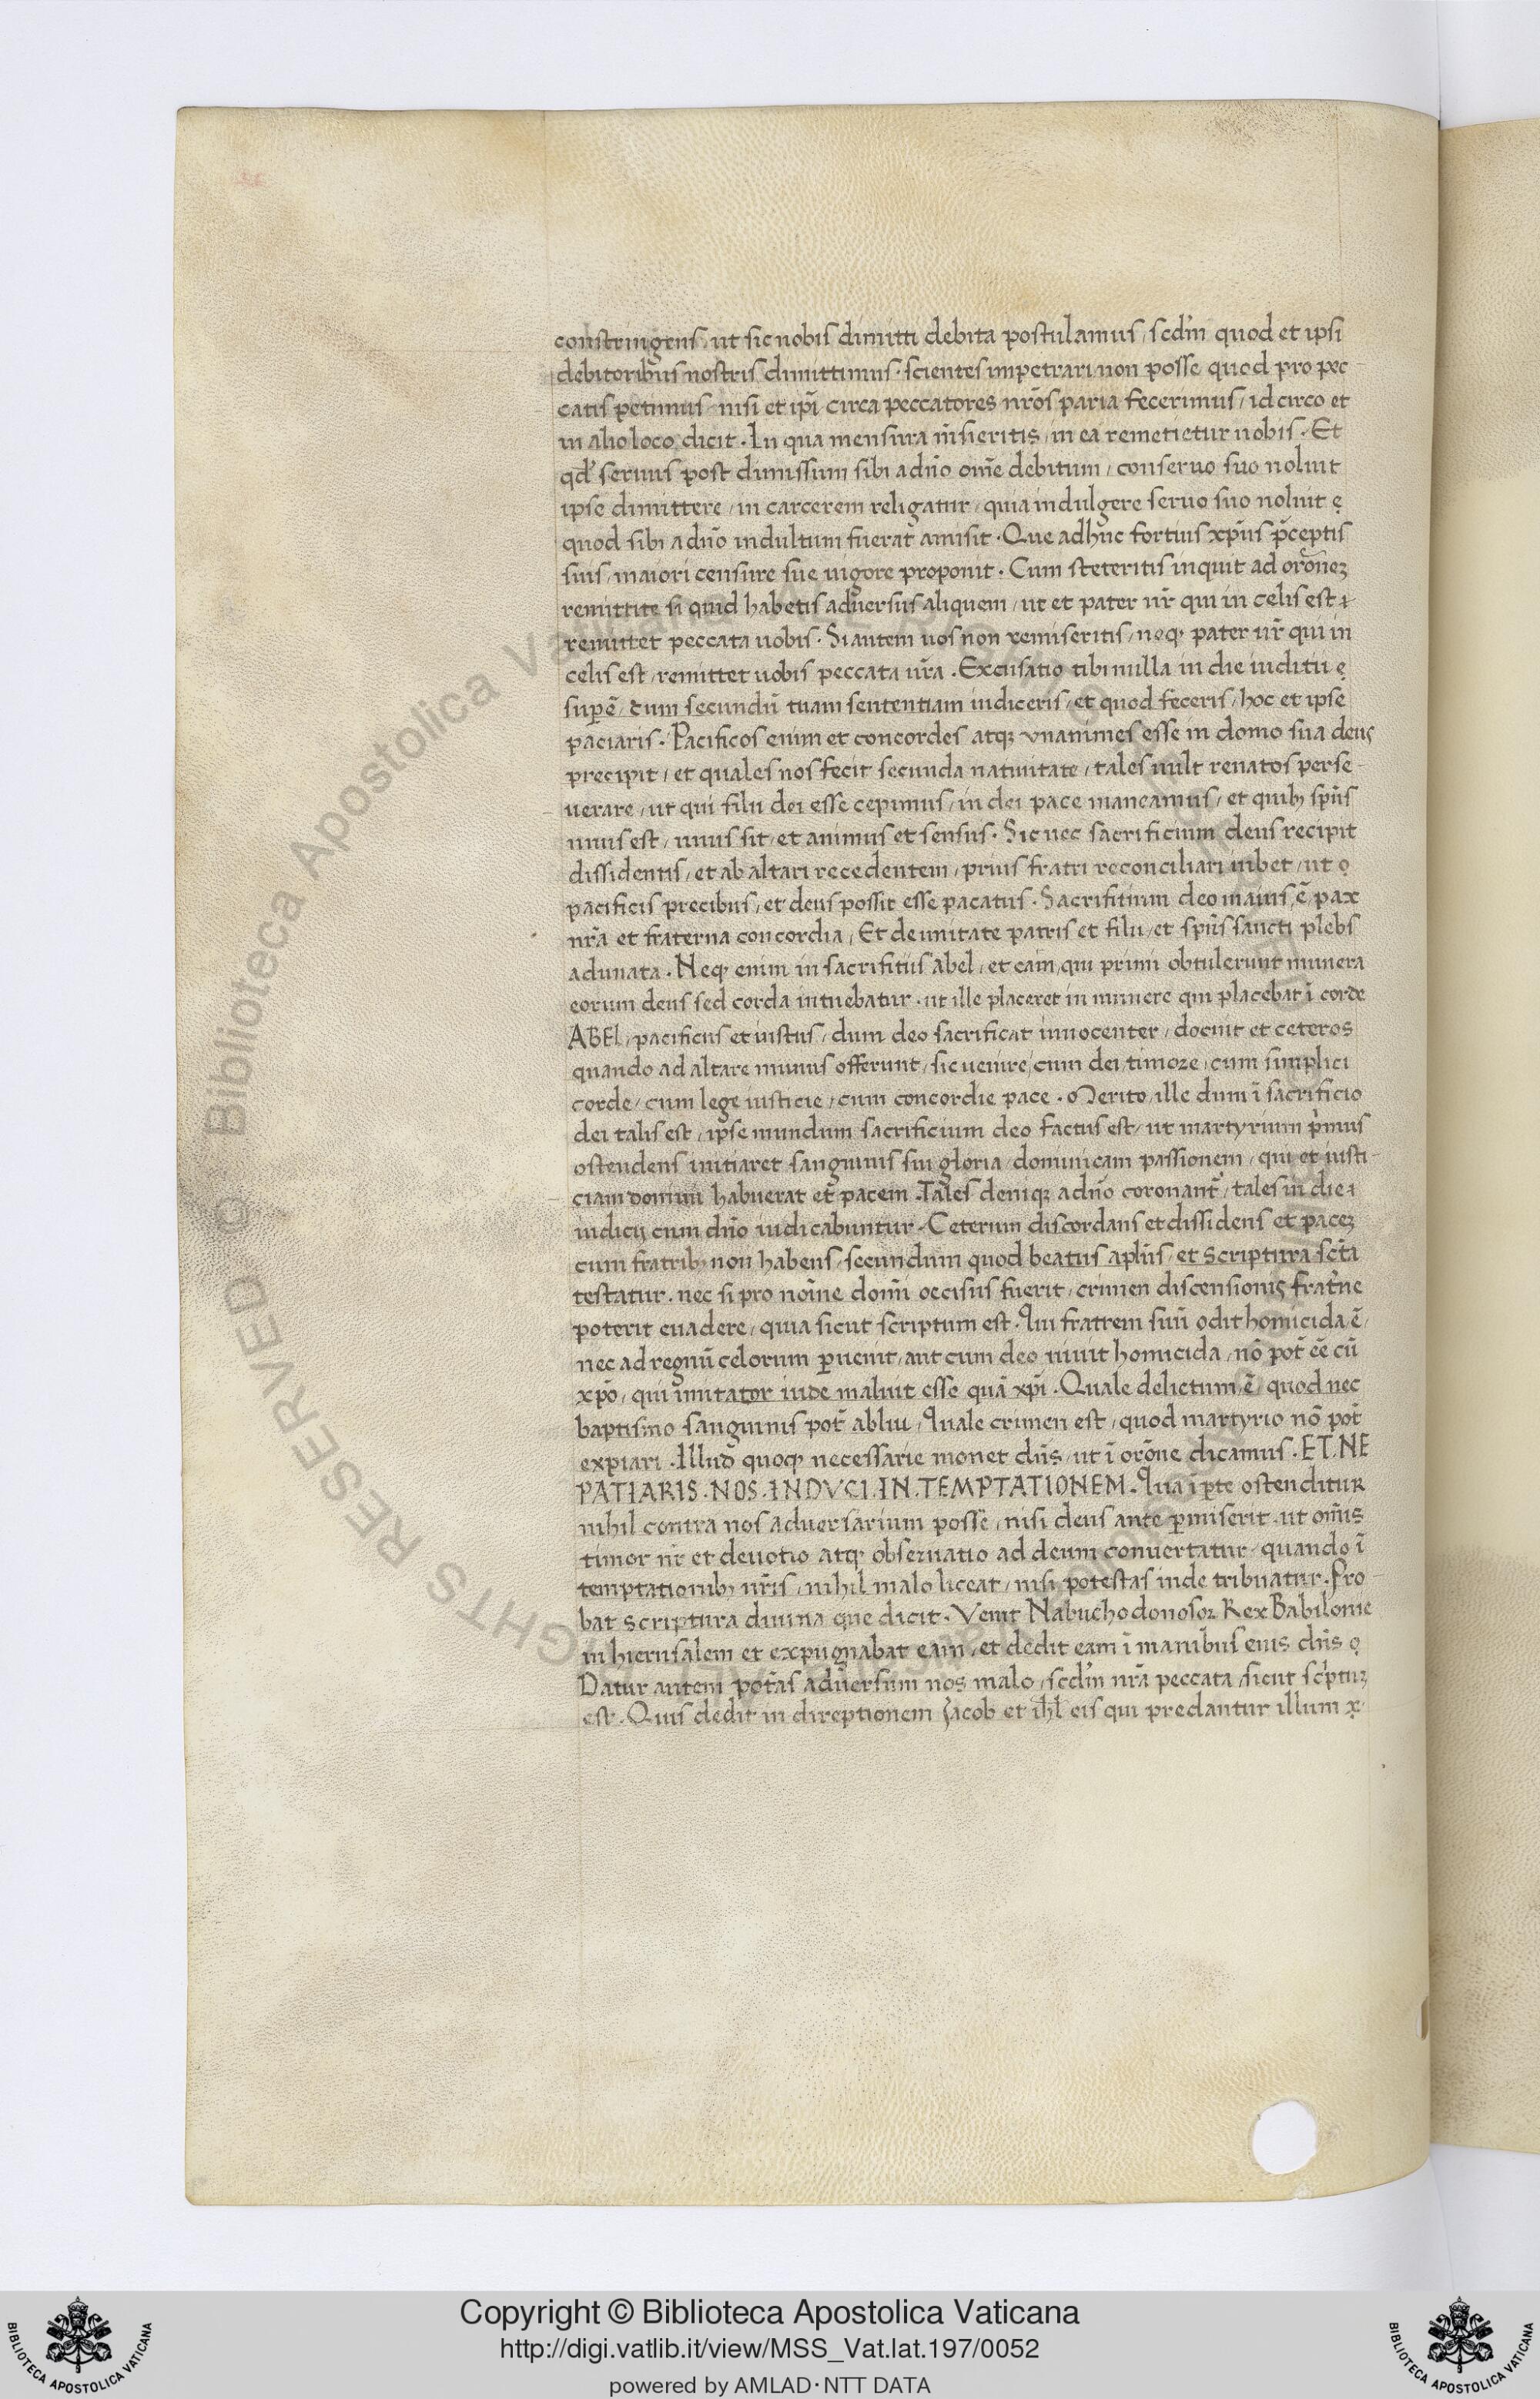 constringens, ut sic nobis dimitti debita postulamus, scdm̄ quod et ipsi
debitoribus nostris dimittimus. scientes impetrari non posse quod pro pec
catis petimus, nisi et ip̄i circa peccatores nr̄os paria fecerimus, id circo et
in alio loco dicit. In qua mensura m̄sieritis, in ea remetietur uobis. Et
qd̄ seruus post dimissum sibi a dn̄o om̄e debitum, conseruo suo noluit
ipse dimittere, in carcerem religatur, quia indulgere seruo suo noluit
quod sibi a dn̄o indultum fuerat amisit. Que adhuc fortius xp̄us p̄ceptis
suis, maiori censure sue uigore proponit. Cum steteritis inquit ad orōnez
remittite si quid habetis aduersus aliquem, ut et pater ur̄ qui in celis est
remittet peccata uobis. Si autem uos non remiseritis, neq; pater ur̄ qui in
celis est, remittet uobis peccata ur̄a. Excusatio tibi nulla in die iuditii
sup̄ē, cum secundū tuam sententiam iudiceris, et quod feceris, hoc et ipse
paciaris. Pacificos enim et concordes atq; vnanimes esse in domo sua deus
precipit, et quales nos fecit secunda natiuitate, tales uult renatos perse-
uerare, ut qui filii dei esse cepimus, in dei pace maneamus, et quib; sp̄us
unus est, unus sit, et animus et sensus. Sic nec sacrificium deus recipit
dissidentis, et ab altari recedentem, prius fratri reconciliari iubet, ut
pacificis precibus, et deus possit esse pacatus. Sacrifitium deo maius, ē, pax
nr̄a et fraterna concordia, Et de unitate patris et filii, et sp̄us sancti plebs
adunata. Neq; enim in sacrifitiis Abel, et cain, qui primi obtulerunt munera
eorum deus sed corda intuebatur. ut ille placeret in munere qui placebat ī corde
ABEL, pacificus et iustus, dum deo sacrificat innocenter, docuit et ceteros
quando ad altare munus offerunt, sic uenire, cum dei, timore, cum simplici
corde, cum lege iusticie, cum concordie pace. Merito, ille dum ī sacrificio
dei talis est, ipse mundum sacrificium deo factus est, ut martyrium p̄mus
ostendens initiaret sanguinis sui gloria, dominicam passionem, qui et iusti-
ciam domini habuerat et pacem. Tales deniq; a dn̄o coronant̄, tales in die
iudicij cum dn̄o iudicabuntur. Ceterum discordans et dissidens et pacez
cum fratrib; non habens, secundum quod beatus apl̄us, et scriptura sc̄ta
testatur. nec si pro noīne domī occisus fuerit, crimen discensionis frat̄ne
poterit euadere, quia sicut scriptum est. Qui fratrem suū odit homicida ē,
nec ad regnū celorum p̄uenit, aut cum deo uiuit homicida, nō pot̄ ēē cū
xp̄o, qui imitator iude maluit esse quā xp̄i. Quale delictum, ē, quod nec
baptismo sanguinis pot̄ ablui, Quale crimen est, quod martyrio nō pot̄
expiari. Illud quoq; necessarie monet dn̄s, ut ī orōne dicamus. ET. NE
PATIARIS. NOS. INDVCI. IN. TEMPTATIONEM. Qua ī p̄te ostenditur
nihil contra nos aduersarium posse, nisi deus ante p̄miserit. ut om̄is
timor nr̄ et deuotio atq; obseruatio ad deum conuertatur, quando ī
temptationib; nr̄is, nihil malo liceat, nisi potestas inde tribuatur. Pro-
bat scriptura diuina que dicit. Venit Nabuchodonosor Rex Babilonie
in hierusalem et expugnabat eam, et dedit eam ī manibus eius dn̄s
Datur autem pot̄as aduersum nos malo, scdm̄ nr̄a peccata, sicut sc̄ptuz
est. Quis dedit in direptionem Jacob et ih̄l eis qui predantur illum
Copyright © Biblioteca Apostolica Vaticana
http://digi.vatlib.it/view/MSS_Vat.lat.197/0052
powered by AMLAD·NTT DATA
BIBLIOTECA APOSTOLICA VATICANA
BIBLIOTECA APOSTOLICA VATICANA